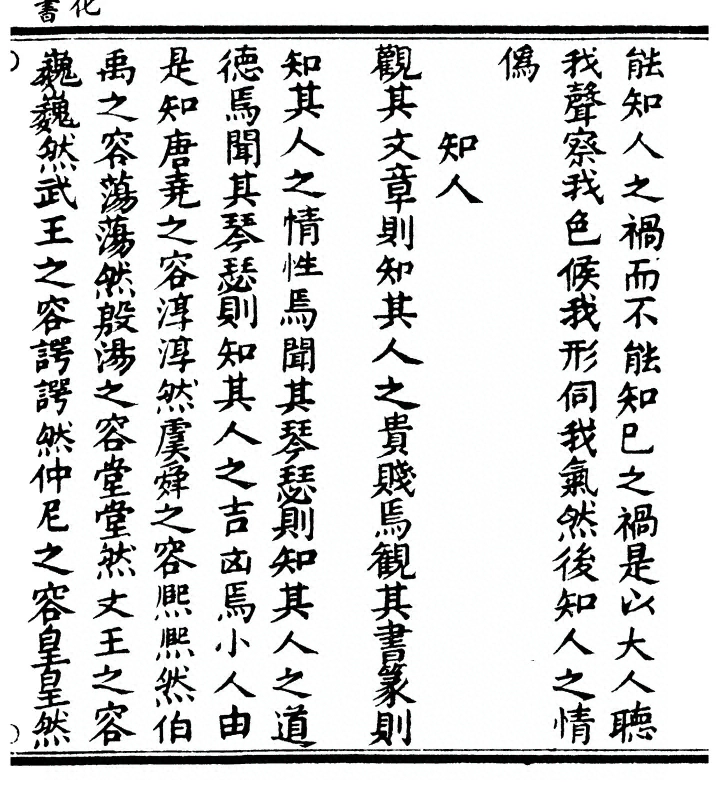 化書
能知人之禍而不能知巳之禍是以大人聽
我聲察我色候我形伺我氣然後知人之情
僞
知人
觀其文章則知其人之貴賤焉觀其書篆則
知其人之情性焉聞其琴瑟則知其人之道
德焉聞其琴瑟則知其人之吉凶焉小人由
是知唐堯之容淳淳然虞舜之容熙熙然伯
禹之容蕩蕩然殷湯之容堂堂然文王之容
巍巍然武王之容諤諤然仲尼之容皇皇然